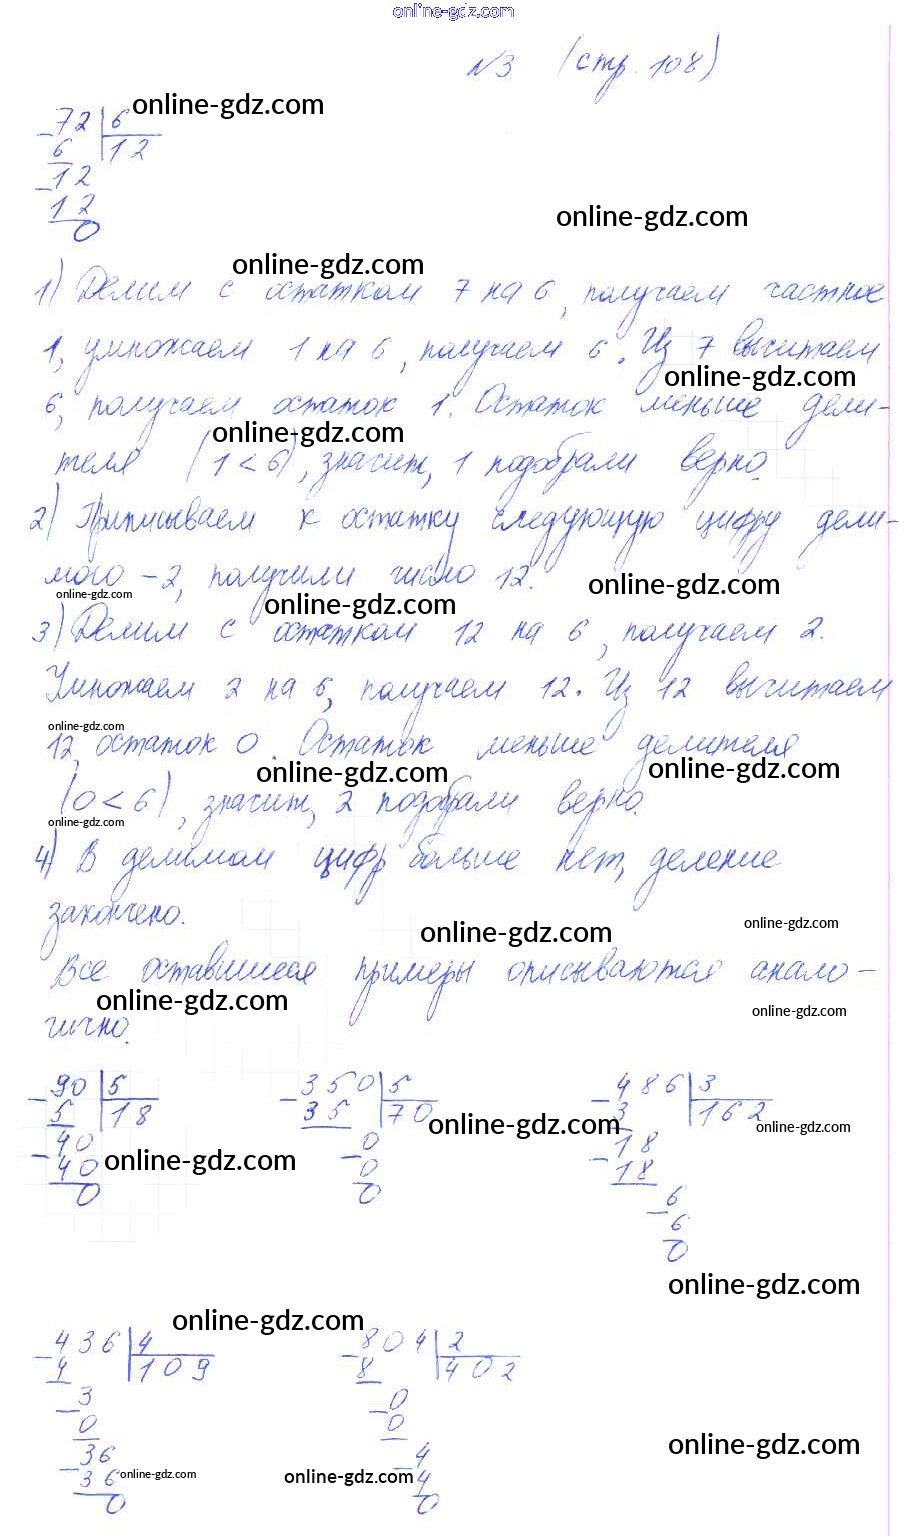 online-gdz.com
№3 (стр. 108)
online-gdz.com
- 72 | 6
6 | 12
- 12
12
0
online-gdz.com
online-gdz.com
1) Делим с остатком 7 на 6, получаем частное
1, умножаем 1 на 6, получаем 6. Из 7 вычитаем
online-gdz.com
6, получаем остаток 1. Остаток меньше дели-
online-gdz.com
теля (1 < 6), значит, 1 подобрали верно.
2) Приписываем к остатку следующую цифру дели-
мого - 2, получили число 12.
online-gdz.com
online-gdz.com
online-gdz.com
3) Делим с остатком 12 на 6, получаем 2.
Умножаем 2 на 6, получаем 12. Из 12 вычитаем
online-gdz.com
12, остаток 0. Остаток меньше делителя
online-gdz.com
online-gdz.com
(0 < 6), значит, 2 подобрали верно.
online-gdz.com
4) В делимом цифр больше нет, деление
закончено.
online-gdz.com
online-gdz.com
Все оставшиеся примеры описываются анало-
online-gdz.com
online-gdz.com
гично.
- 90 | 5 - 350 | 5 - 486 | 3
5 | 18 35 | 70 3 | 162
online-gdz.com
online-gdz.com
- 40 - 0 - 18
40 0 18
online-gdz.com
0 0 - 6
6
0
online-gdz.com
online-gdz.com
- 436 | 4 - 804 | 2
4 | 109 8 | 402
- 3 - 0
0 0
online-gdz.com
- 36 - 4
36 4
online-gdz.com
online-gdz.com
0 0